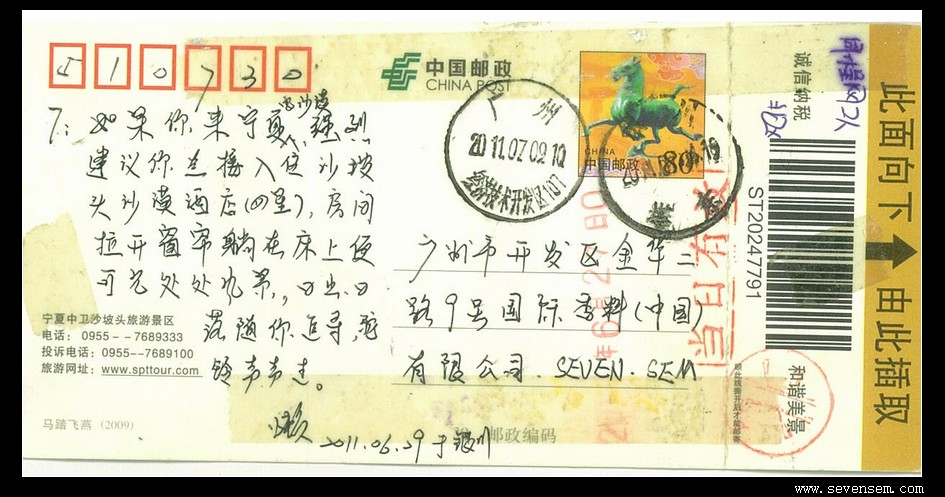 510730
中国邮政
CHINA POST
7: 如果你来宁夏沙漠, 强烈
建议你直接入住沙坡
头沙漠酒店(四星), 房间
拉开窗帘躺在床上便
可览处处风景, 日出日
落随你追寻, 驼
铃声声走。
懒
2011.06.29 于银川
宁夏中卫沙坡头旅游景区
电话: 0955--7689333
投诉电话: 0955--7689100
旅游网址: www.spttour.com
马踏飞燕 (2009)
广州
2011.07.02 10
CHINA
中国邮政 80分
广州市开发区金华二
路9号国际香料(中国)
有限公司. SEVEN. SEM
邮政编码
诚信纳税
ST20247791
和谐美景
此面向下
由此撕取
www.sevensem.com